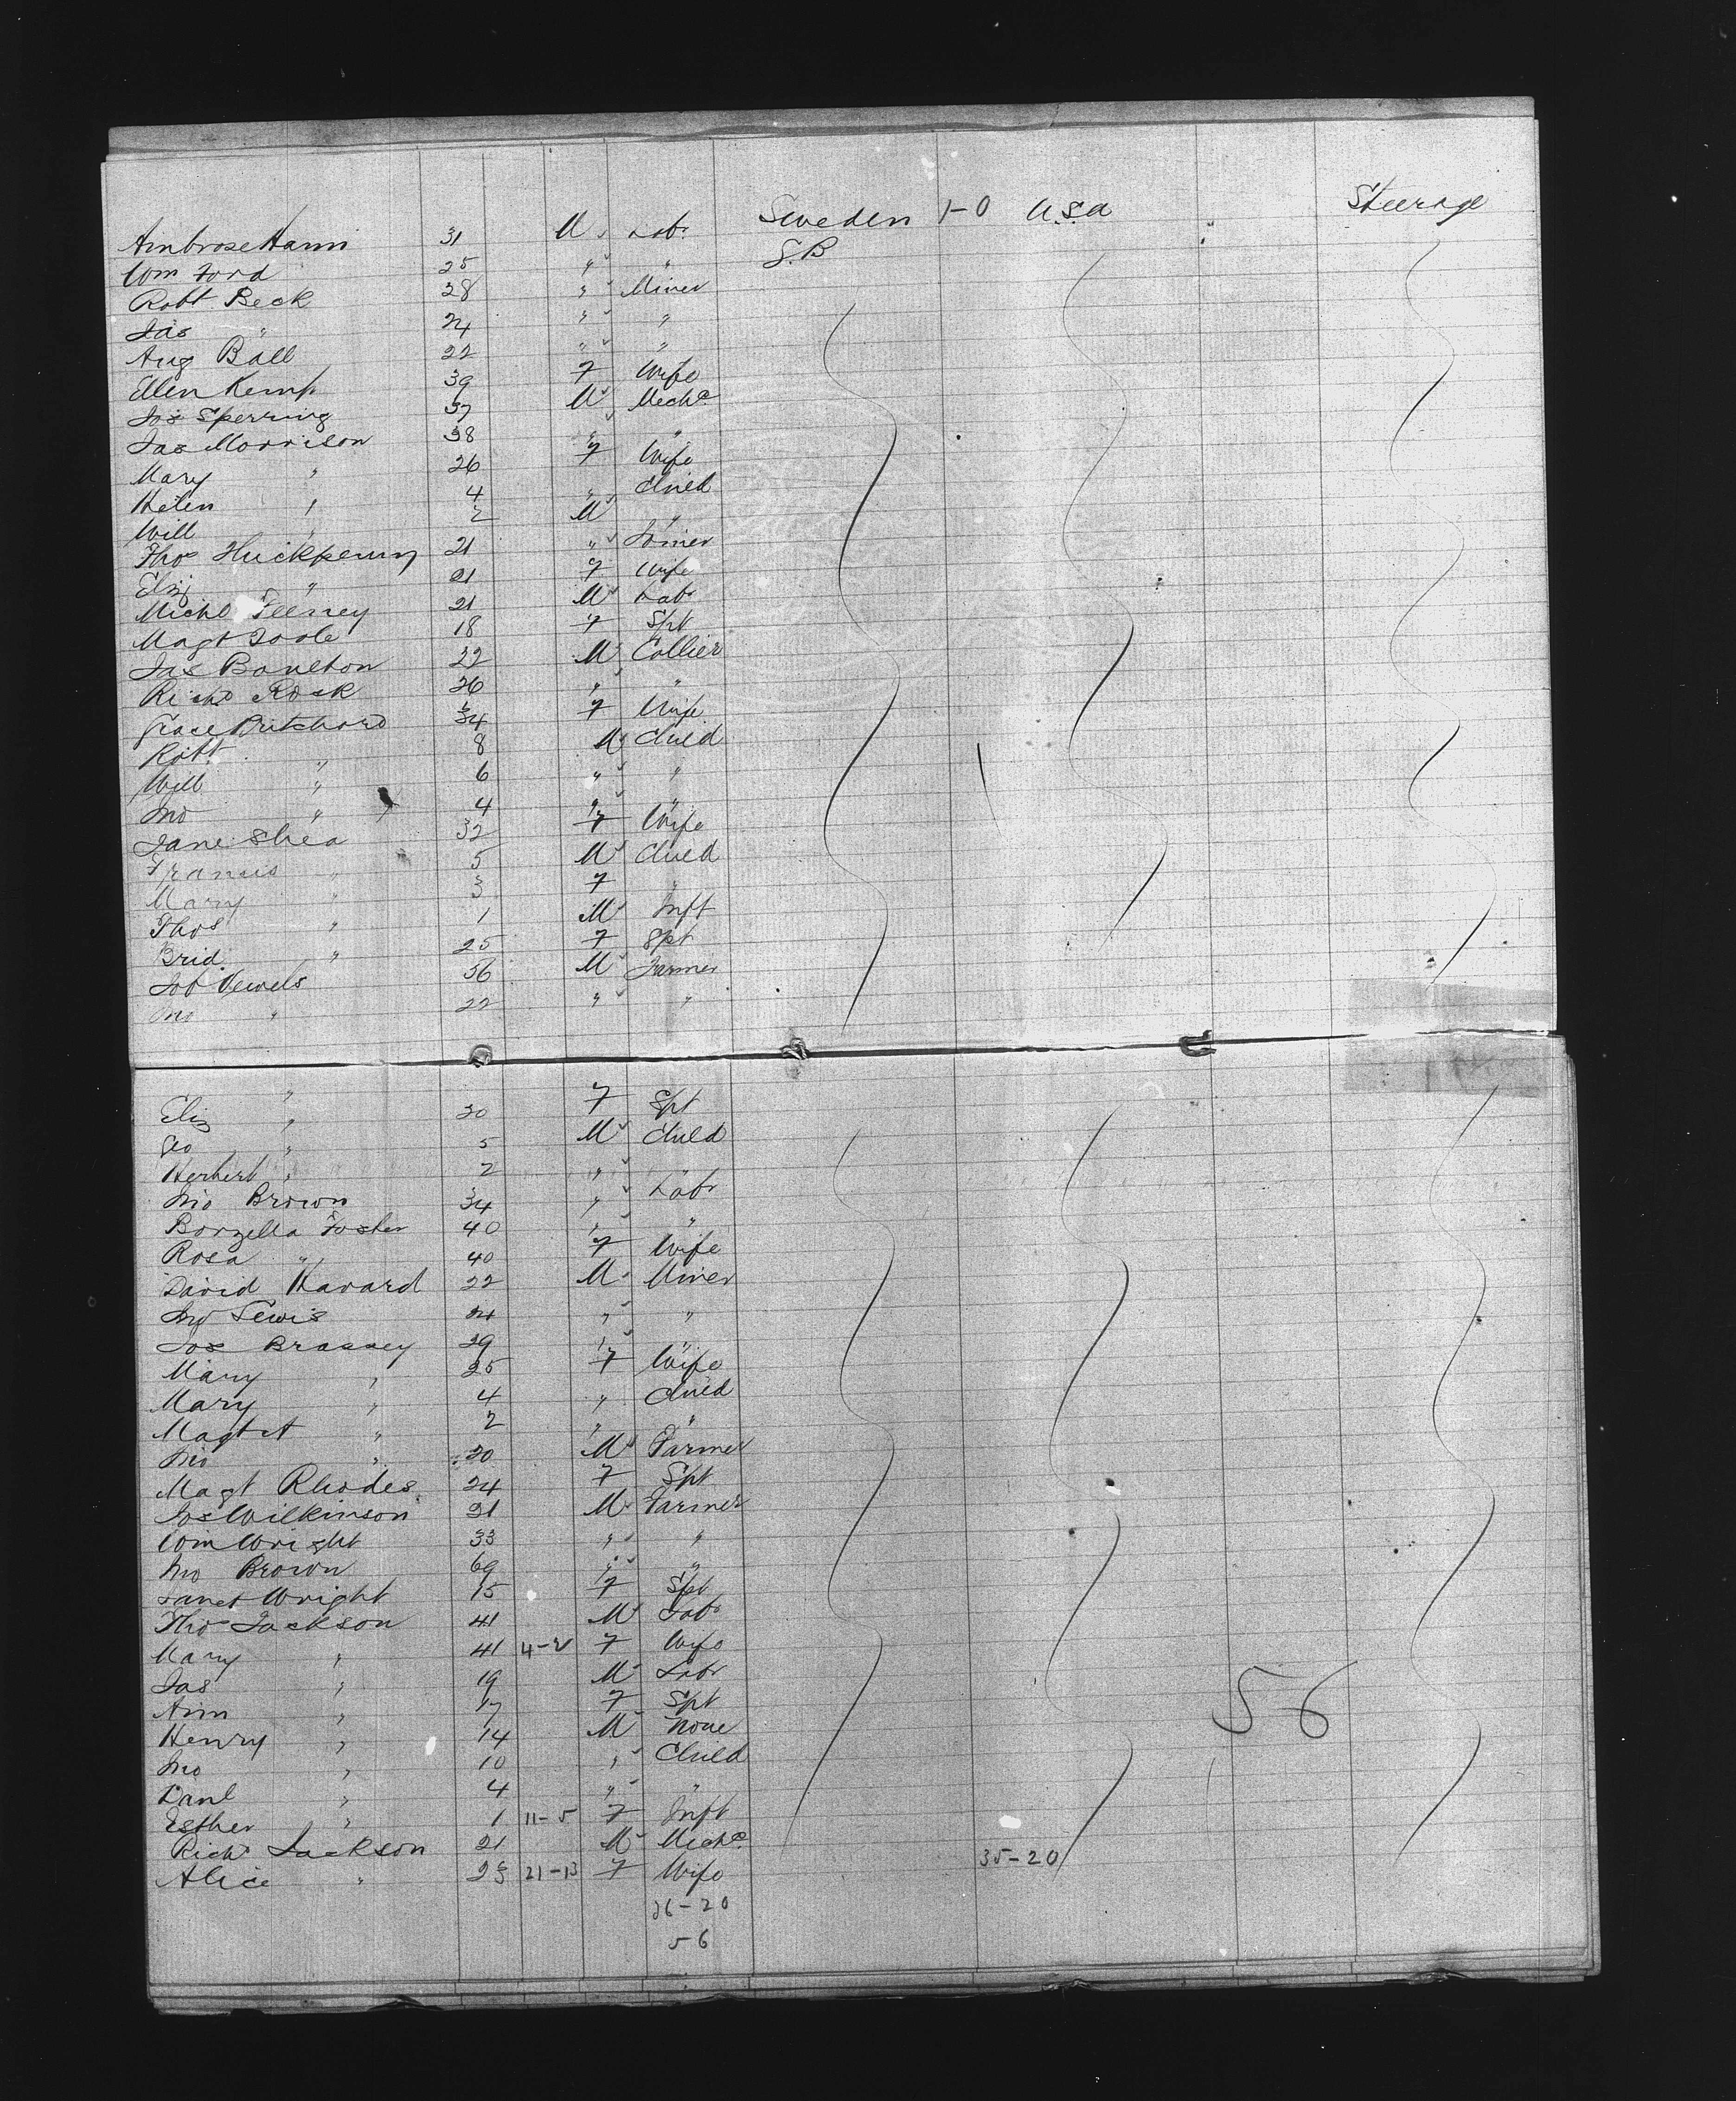 Ambrose Hann 31 M Labr Sweden 1-0 U.S.A Steerage
Wm Ford 25 " " G.B
Robt Beck 28 " Miner
Jas " 24 " "
Aug Ball 22 " "
Ellen Kemp 39 F Wife
Jos Sperring 37 M Mech
Jas Morrison 38 " "
Mary " 26 F Wife
Helen " 4 " Child
Will " 2 M "
Thos Huckperry 21 " Joiner
Eliz " 21 F Wife
Michl Feeney 21 M Labr
Magt Toole 18 F Spt
Jas Boulton 22 M Collier
Richd Rock 26 " "
Grace Pritchard 34 F Wife
Robt " 8 M Child
Will " 6 " "
Jno " 4 " "
Jane Shea 32 F Wife
Francis " 5 M Child
Mary " 3 F "
Thos " 1 M Inft
Brid " 25 F Spt
Job Vewels 56 M Farmer
Jno " 22 " "
Eliz " 20 F Spt
Geo " 5 M Child
Herbert " 2 "
Jno Brown 34 " Labr
Borzella Foster 40 " "
Rosa " 40 F Wife
David Havard 22 M Miner
Jno Lewis 24 " "
Jos Brassey 29 " "
Mary " 25 F Wife
Mary " 4 " Child
Magt A " 2 " "
Jno " 20 M Farmer
Magt Rhodes 24 F Spt
Jos Wilkinson 21 M Farmer
Wm Wright 33 " "
Jno Brown 69 " "
Janet Wright 15 F Spt
Thos Jackson 41 M Labr
Mary " 41 4-2 F Wife
Jas " 19 M Labr
Ann " 17 F Spt 56
Henry " 14 M None
Jno " 10 " Child
Danl " 4 " "
Esther " 1 11-5 F Inft
Richd Jackson 21 M Mech
Alice " 23 21-13 F Wife 35-20
36-20
56